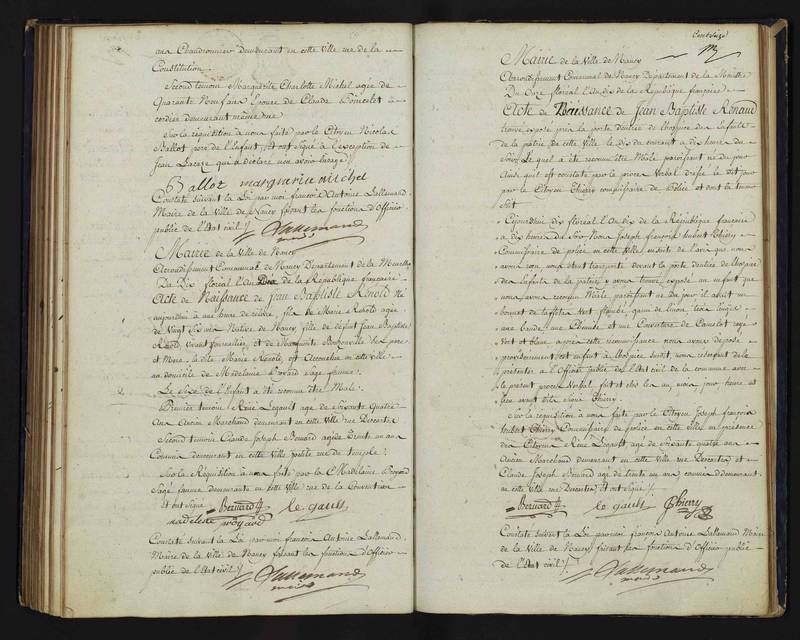 ans Chaudronnier demeurant en cette Ville rue de la
Constitution.
Second temoin Marguerite Charlotte Michel agée de
Quarante Neuf ans Epouse de Claude
cordier demeurant même rue
Sur la réquisition a nous faite par le Citoyen Nicolas
Ballot pere de l'Enfant, et ont signé à l'exception de
Jean qui a déclaré
Ballot marguerite michel
Constaté suivant la Loi par moi françois Antoine Lallemand
Maire de la Ville de Nancy faisant les fonctions d'Officier
public de l'Etat civil
Lallemand
maire
Mairie de la Ville de Nancy
Arrondissement Communal de Nancy Departement de la Meurthe
Du Dix floréal l'An Dix de la République française
Acte de Naissance de Jean Baptiste Renold Né
aujourdhui à une heure de fils de Marie Renold agée
de Vingt Six ans Native de Nancy fille de défunt Jean Baptiste
Renold, vivant et de Marguerite ses pere
et Mere, la dite Marie Renold, est accouchée en cette ville
au domicile de Madelaine Poyard Sage femme.
Le Sexe de l'Enfant a été reconnu être Male.
Premier temoin René Legault agé de Soixante Quatre
Ans Ancien Marchand demeurant en cette Ville rue Descartes
Second temoin Claude Joseph Benard agé de Trente un ans
Commis demeurant en cette Ville petite rue du temple.
Sur la Réquisition à nous faite par la Madelaine Poyard
Sage femme demeurante en cette Ville rue de la Convention
et ont Signé Bernard le gault
madeleine poyard
Constaté Suivant la Loi par moi françois Antoine Lallemand
Maire de la Ville de Nancy faisant les fonctions d'Officier
public de l'Etat civil
Lallemand
maire
Cent Seize
Mairie de la Ville de Nancy
Arrondissement Communal de Nancy Departement de la Meurthe
Du Onze floréal l'An dix de la République française
Acte de Naissance de Jean Baptiste Renaud
trouvé exposé près la porte d'entrée de l'hospice des Enfants
de la patrie de cette ville le dix du courant a dix heures du
Soir Lequel a été reconnu être Male paroissant né du jour
Ainsi qu'il est constaté par le procès Verbal dressé le dit jour
par le Citoyen Thiery commissaire de Police et dont la teneur
Suit
Cejourdhui dix floréal l'An dix de la République française
à dix heures du Soir Nous Joseph françois hubert Thiery
Commissaire de police en cette Ville ensuite de l'avis que nous
avons reçu nous étant transporté devant la porte d'entrée de l'hospice
des Enfants de la patrie y avons trouvé exposé un enfant que
nous avons reconnu Male paroissant né du jour il avoit un
bonnet de taffetas Vert garni de linon
une bande une Chemise et une Couverture de Camelot rayé
Vert et blanc après cette reconnoissance nous avons déposé
provisoirement cet enfant à l'hospice susdit, nous réservant de le
présenter à l'Officier public de l'Etat civil de la commune avec
le présent procès Verbal fait et clos les an, mois jour heure et
lieu avant dits Signé Thiery.
Sur la réquisition à nous faite par le Citoyen Joseph françois
hubert Thiery Commissaire de police en cette ville en présence
des Citoyens René Legault agé de Soixante quatre ans
Ancien Marchand demeurant en cette Ville rue Descartes et
Claude Joseph Benard agé de trente un ans commis demeurant
en cette Ville rue Descartes, et ont Signé
Bernard le gault Thiery
Constaté Suivant la Loi par moi françois Antoine Lallemand Maire
de la Ville de Nancy faisant les fonctions d'Officier public
de l'Etat civil
Lallemand
maire